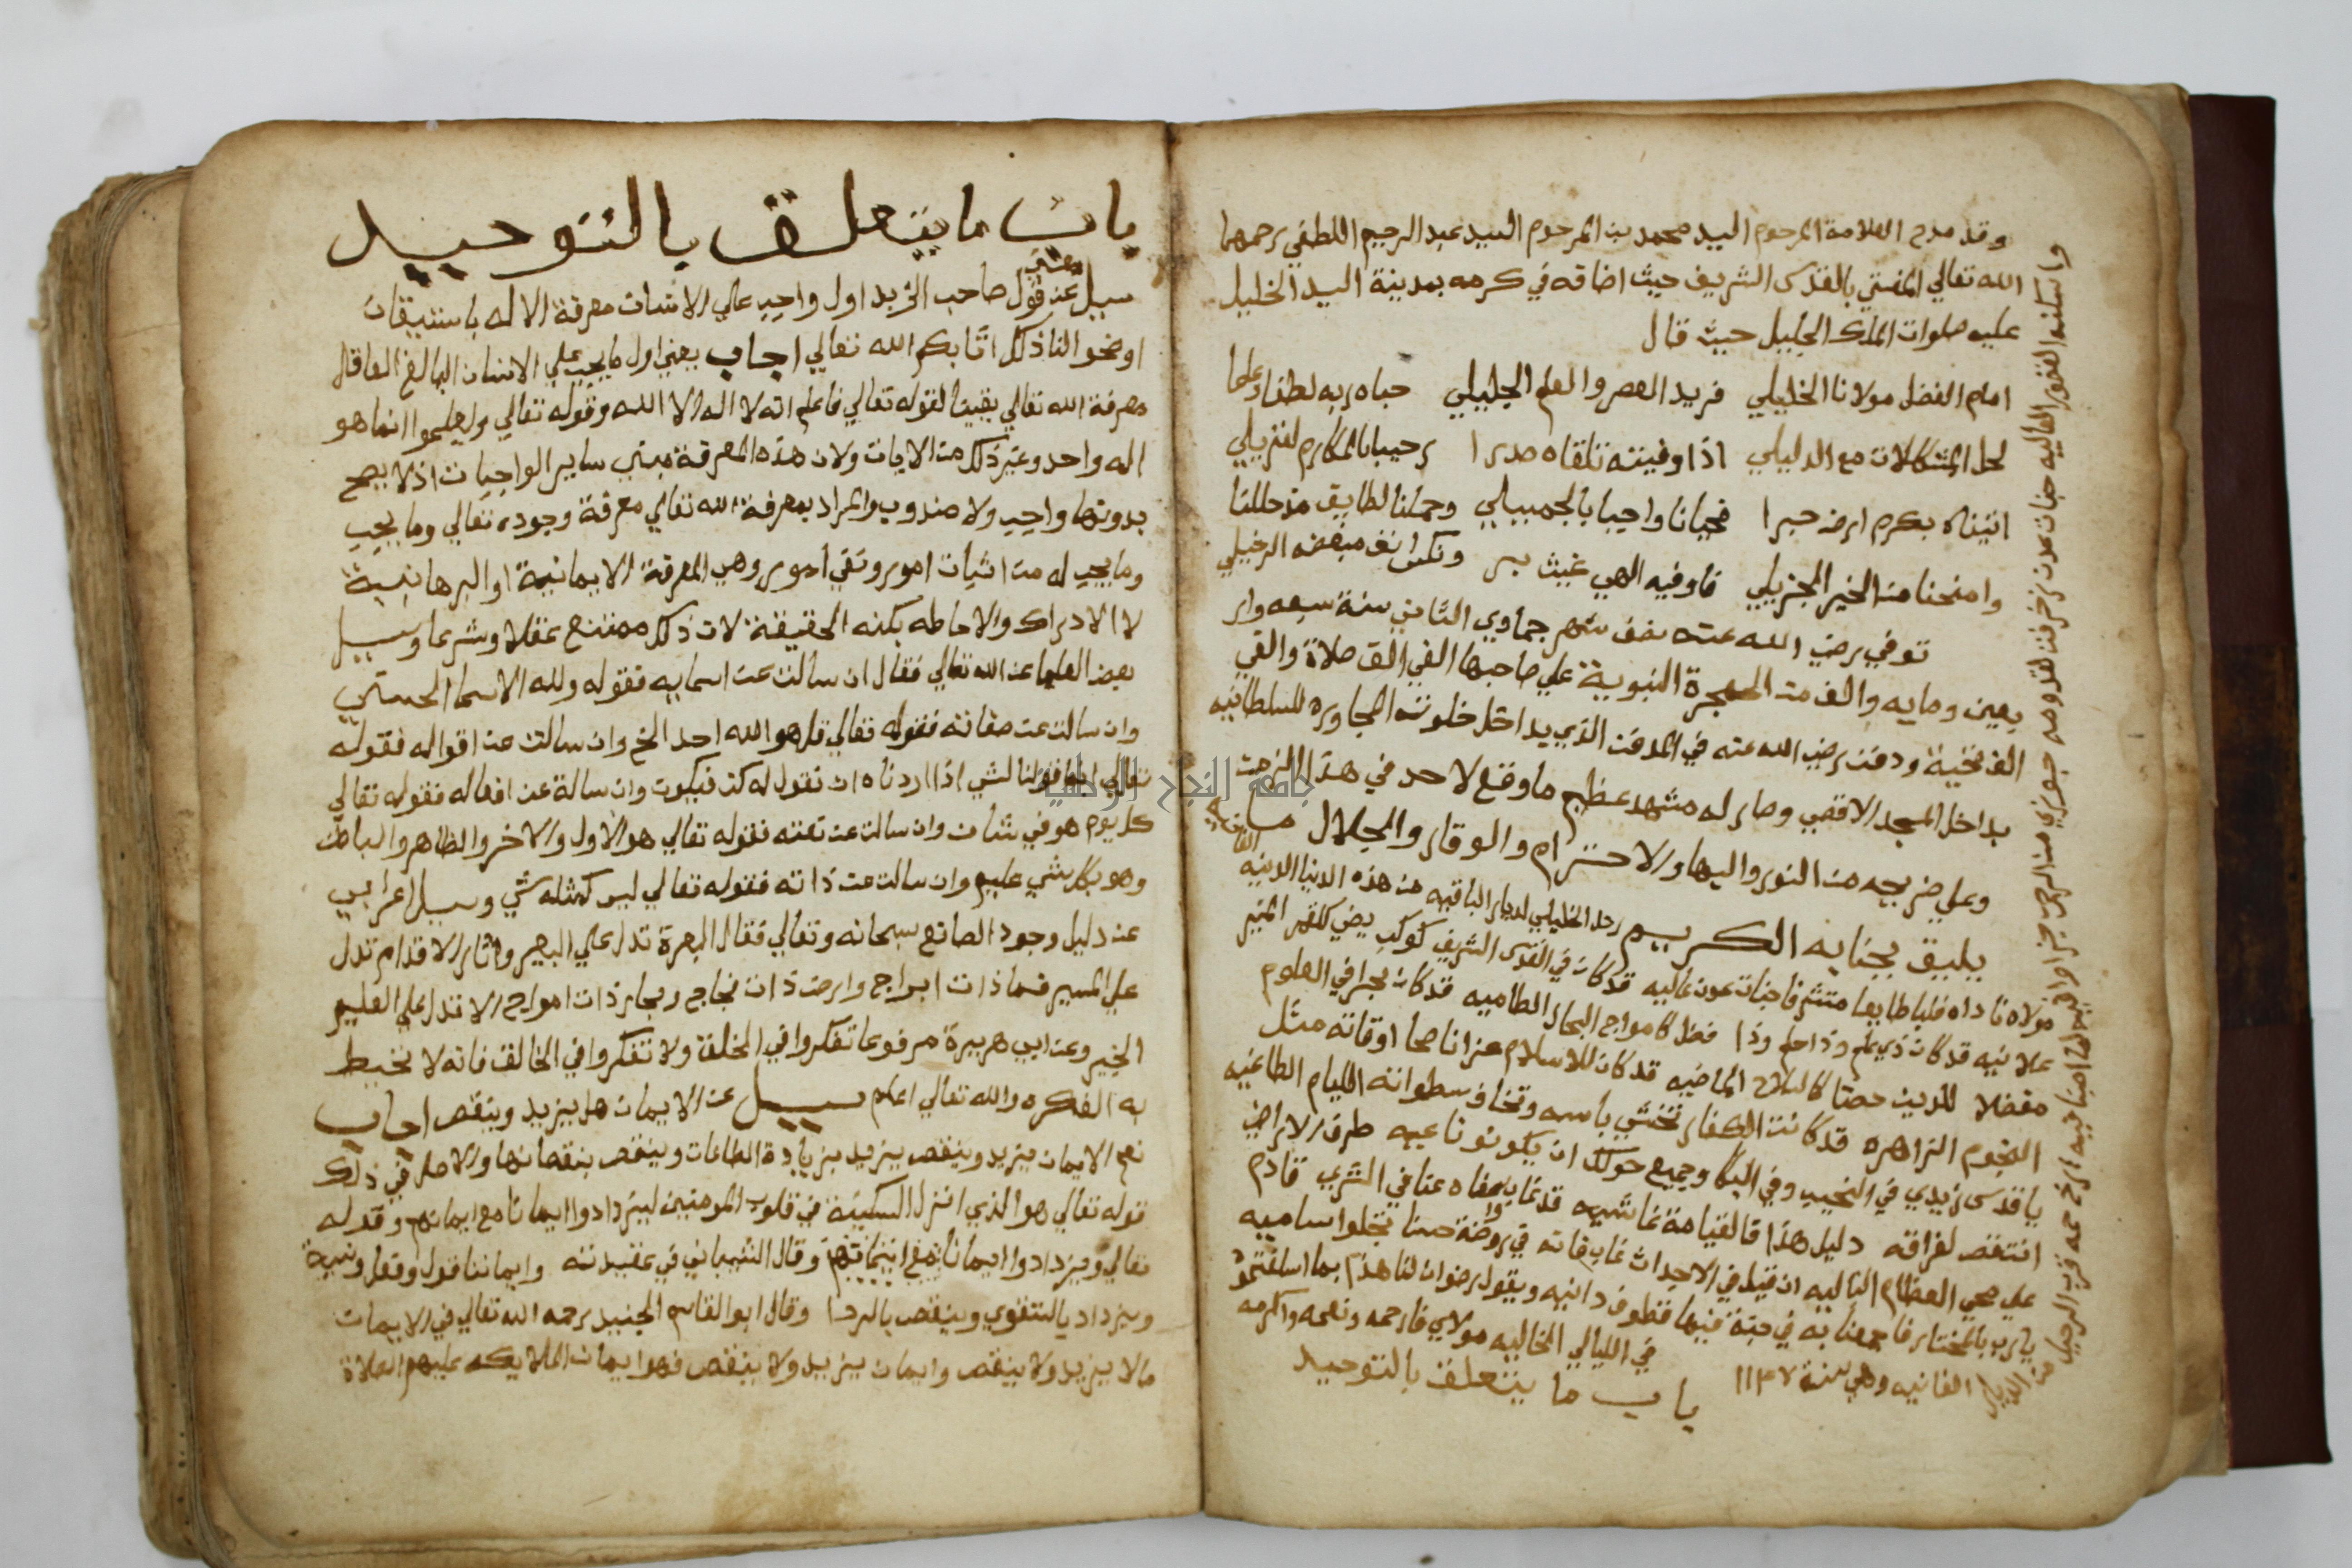 وقد مدح العلامة المرحوم السيد محمد بن المرحوم السيد عبد الرحيم اللطفي رحمهما
الله تعالي المفتي بالقدس الشريف حيث اضافه في كرمه بمدينة السيد الخليل
عليه صلوات الملك الجليل حيث قال
امام الفضل مولانا الخليلي فريد العصر والعلم الجليلي حباه ربه لطفا وعلما
لحل المشكلات مع الدليلي اذا وفيته تلقاه صدرا رحيبا بالمكارم للنزيلي
اتيناه بكرم ارض حبرا فحيانا واحبا بالجميلي وحملنا لطايف مذ حللنا
وامنحنا من الخير الجزيلي فاوفيه الهي غيث بر مبغضه الرذيلي
توفي رضي الله عنه نصف شهر جمادي الثاني سنة سبعه وار
بعين ومايه والف من الهجرة النبوية علي صاحبها الفي الف صلاة والفي
الف تحية ودفن رضي الله عنه في المدفن الذي بداخل خلوته المجاوره للسلطانيه
بداخل المسجد الاقصي وصار له مشهد عظيم ما وقع لاحد في هذا الزمن
وعلي ضريحه من النور والبها والاحترام والوقار والجلال ما
يليق بجنابه الكريم رحل الخليلي لديار الباقيه من هذه الدنيا الدنيه الفانيه
مولاه ناداه فلبا طايعا متشرفا جنات عدن عاليه قد كان في القدس الشريف كوكب يضي كالقمر المنير
علانيه قد كان ذي علم وذا حلم وذا فضل كامواج البحار الطاميه قد كان بحرا في العلوم
مفضلا للدين حصنا كالسلاح الماضيه قد كان للاسلام عزا ناصحا اوقاته مثل
النجوم الزاهره قد كانت الكفار تخشي باسه وتخاف سطواته الليام الطاغيه
يا قدس زيدي في النحيب وفي البكا وجميع حولك ان يكونوا ناعيه طرف الاراضي
انتقص لفراقه دليل هذا قالقيامة غاشيه قد غاب عنا في الثري قادم
علي محي العظام الباليه ان قيل في الاجداث غاب فانه في روضة حسنا تجلوا ساميه
يارب بالمختار فاجمعنا به في جنة فيها قطوف دانيه ويقول رضوان لنا هذا بما اسلفتموا
في الليالي الخاليه مولاي فارحمه ونعمه واكرمه
واسكنه القصور العاليه جنات عدن زخرفت لقدومه جوزي من الرحمن جزا وافيه
ارخ حمه قرب الرحيل من الديار الفانيه وهي سنة ١١٤٧
باب ما يتعلق بالتوحيد
باب ما يتعلق بالتوحيد
سيل عن معني قول صاحب الزبد اول واجب علي الانسان معرفة الاله باستيقان
اوضحوا لنا ذلك اثابكم الله تعالي اجاب يعني اول ما يجب علي الانسان البالغ العاقل
معرفة الله تعالي يقينا لقوله تعالي فاعلم انه لا اله الا الله وقوله تعالي وليعلموا انما هو
اله واحد وغير ذلك من الايات ولان هذه المعرفة مبني ساير الواجبات اذ لا يصح
بدونها واجب ولا مندوب والمراد بمعرفة الله تعالي معرفة وجوده تعالي وما يجب
وما يجب له من اثبات امور ونفي امور وهي المعرفة الايمانية او البرهانية
لا الادراك والاحاطه بكنه الحقيقة لان ذلك ممتنع عقلا وشرعا وسيل
بعض العلما عن الله تعالي فقال ان سالت عن اسمايه فقوله ولله الاسما الحسني
وان سالت عن صفاته فقوله تعالي قل هو الله احد الخ وان سالت عن اقواله فقوله
تعالي انما قولنا لشي اذا اردناه ان نقول له كن فيكون وان سالة عن افعاله فقوله تعالي
كل يوم هو في شان وان سالت عن نعته فقوله تعالي هو الاول والاخر والظاهر والباطن
وهو بكل شي عليم وان سالت عن ذاته فقوله تعالي ليس كمثله شي وسيل اعرابي
عن دليل وجود الصانع سبحانه وتعالي فقال البعرة تدل علي البعير واثار الاقدام تدل
علي المسير فسما ذات ابراج وارض ذات فجاج وبحار ذات امواج الا تدل علي العليم
الخبير وعن ابي هريرة مرفوعا تفكروا في الخلق ولا تتفكروا في الخالق فانه لا تحيط
به الفكره والله تعالي اعلم سيل عن الايمان هل يزيد وينقص اجاب
نعم الايمان يزيد وينقص يزيد بزيادة الطاعات وينقص بنقصانها والاصل في ذلك
قوله تعالي هو الذي انزل السكينة في قلوب المومنين ليزدادوا ايمانا مع ايمانهم وقوله
تعالي ويزدادوا ايمانا مع ايمانهم وقال الشيباني في عقيدته وايماننا قول وفعل ونية
ويزداد بالتقوي وينقص بالردا وقال ابو القاسم الجنيد رحمه الله تعالي في الايمان
ما لا يزيد ولا ينقص وايمان يزيد ولا ينقص فهو ايمان الملايكه عليهم الصلاة
جامعة النجاح الوطنية